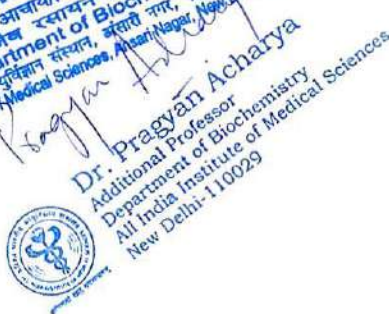 आचार्य
रसायन
Department of Bioch
आयुर्विज्ञान संस्थान, अंसारी नगर,
Medical Sciences, Ansari Nagar, New
Pragyan Acharya
Dr. Pragyan Acharya
Additional Professor
Department of Biochemistry
All India Institute of Medical Sciences
New Delhi-110029